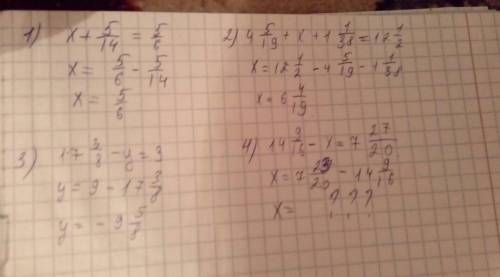 1) x + 5/14 = 5/6
x = 5/6 - 5/14
x = 5/6
2) 4 5/19 + x + 1 1/38 = 12 1/2
x = 12 1/2 - 4 5/19 - 1 1/38
x = 6 4/19
3) 17 3/8 - y = 9
y = 9 - 17 3/8
y = - 9 5/8
4) 14 9/16 - x = 7 27/20
x = 7 23/20 - 14 9/16
x = ? ? ?